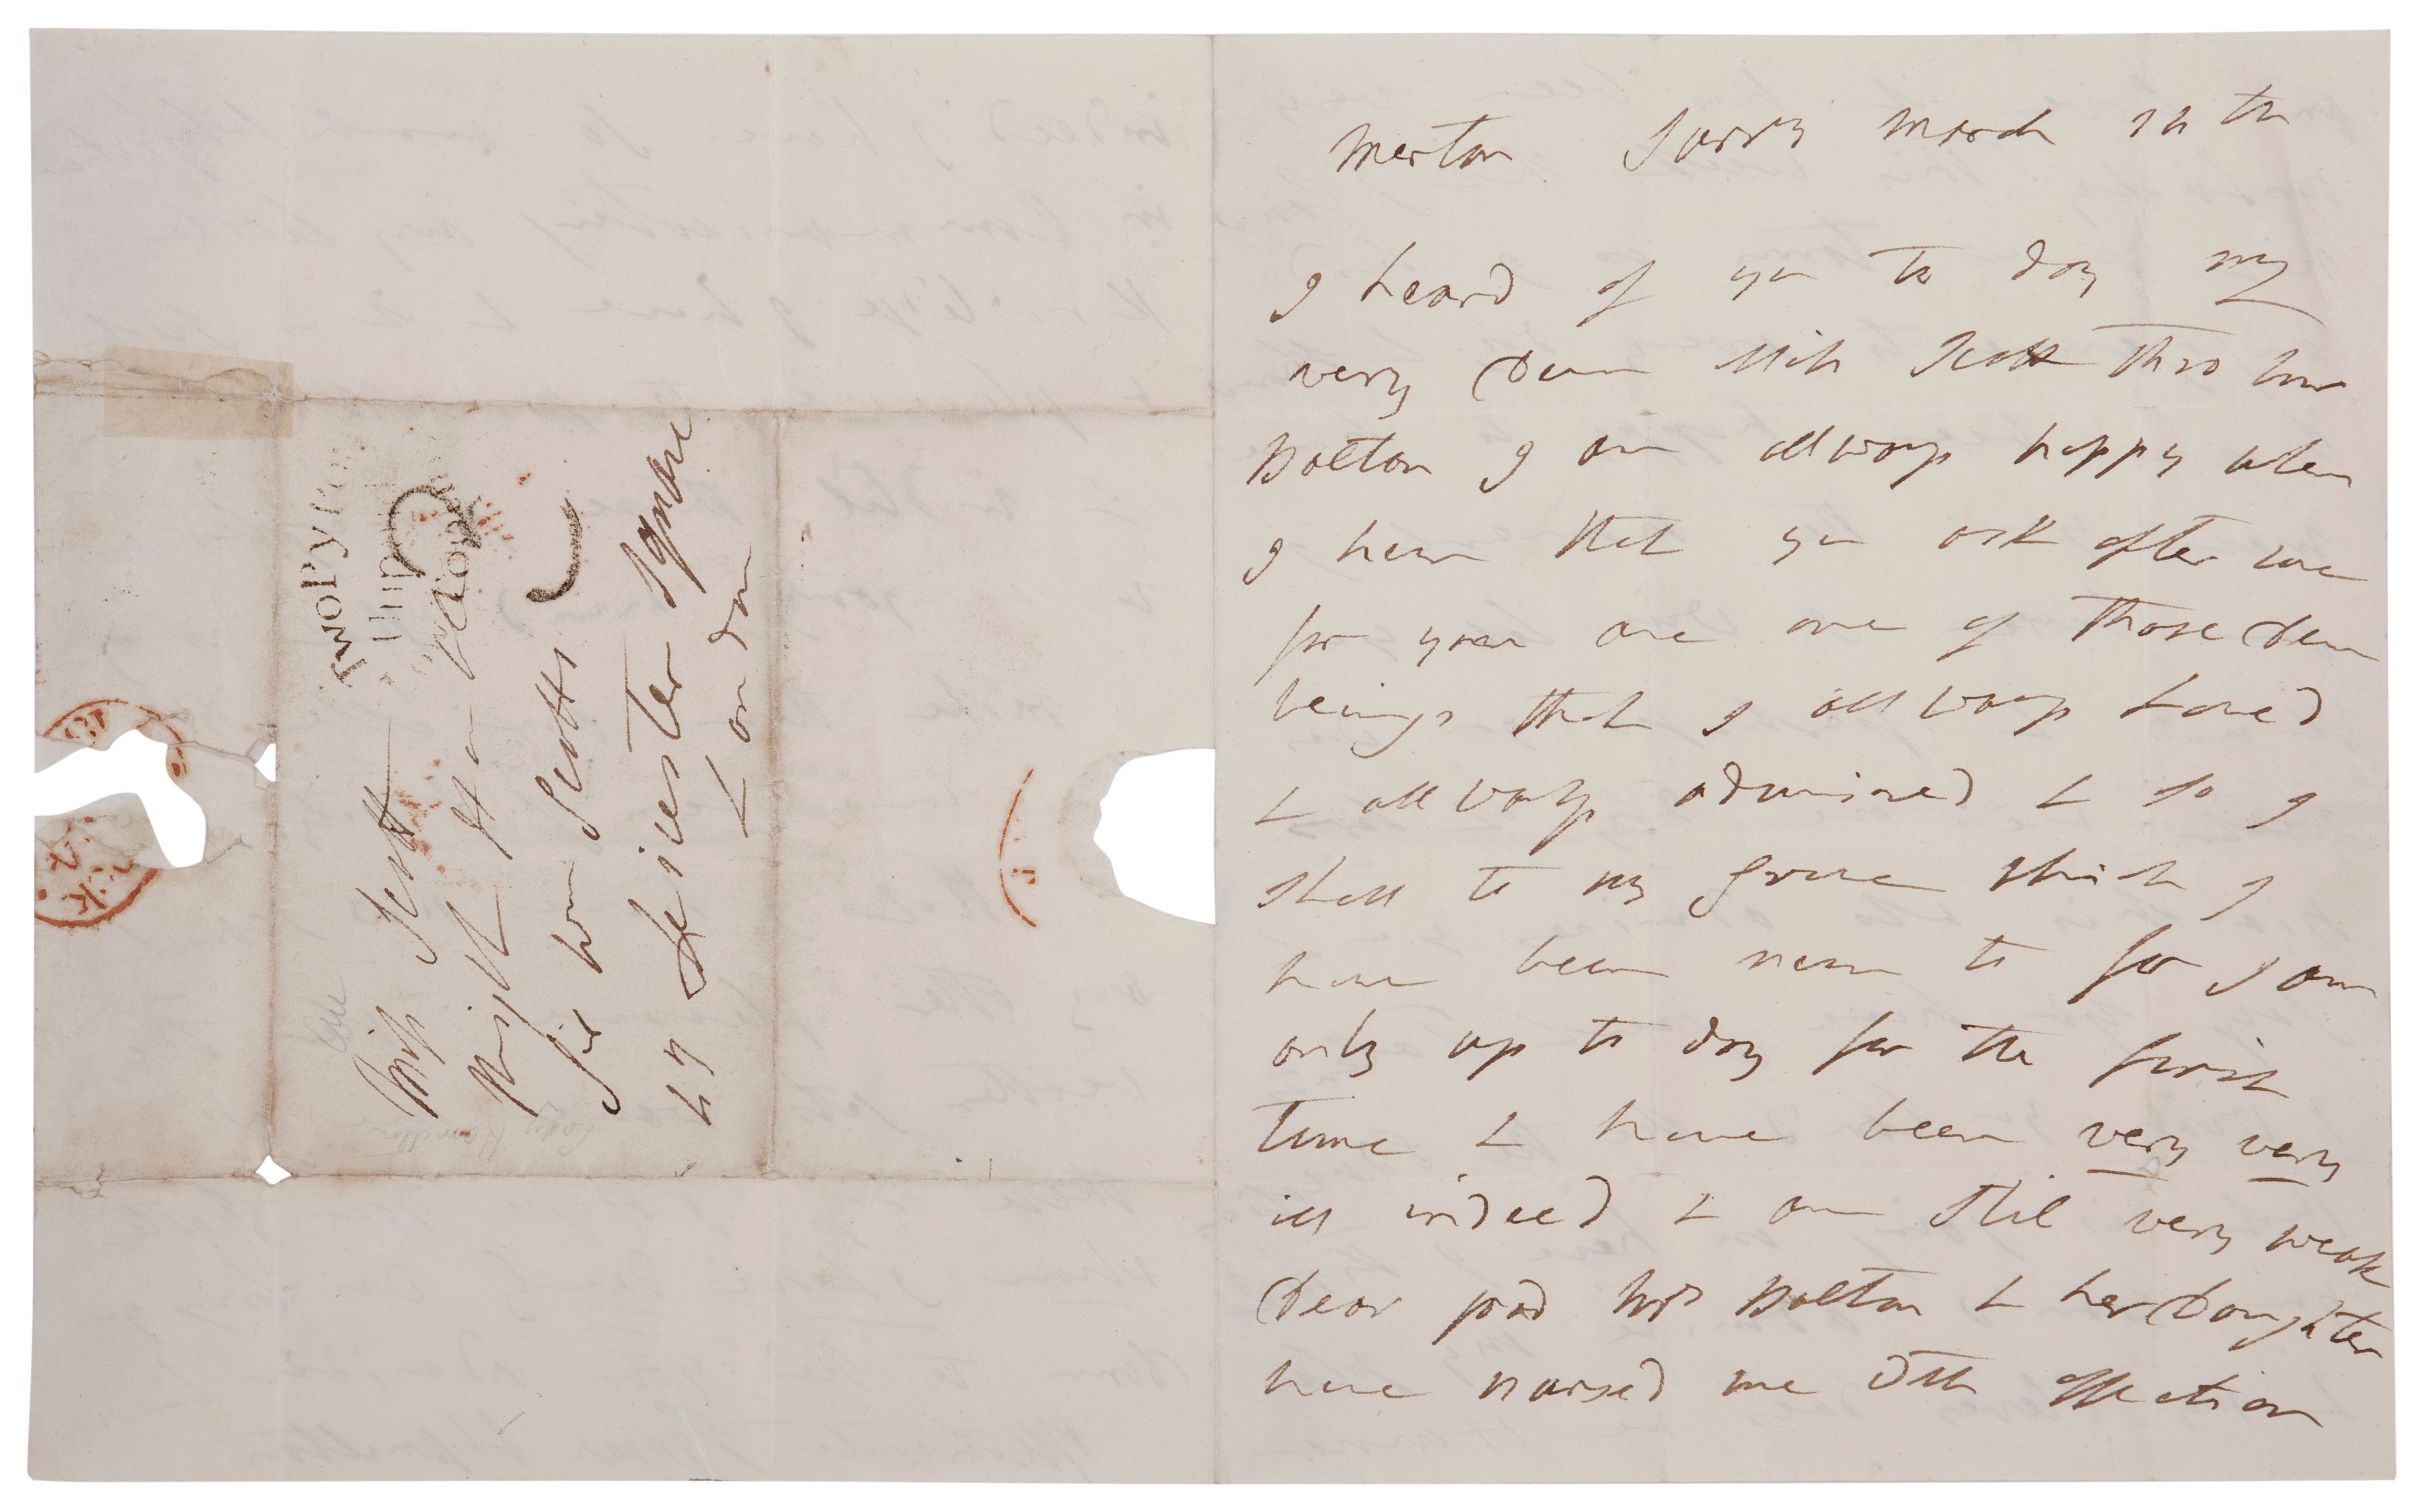 Merton Surry March
I heard of you to day my
very Dear Miss Scott thro Mrs
Bolton I am allways happy when
I hear that you ask after me
for you are one of those Dear
beings that I allways Loved
& allways admired & so I
shall to my grave which I
have been near to for I am
only up to day for the first
Time & have been very very
ill indeed & am stil very weak
Dear good Mrs Bolton & her Daughter
have nursed me with affection
Miss Scott
Right Hon
Sir Wm Scotts
Leicester Square
London
Two Py
Lady Hamilton